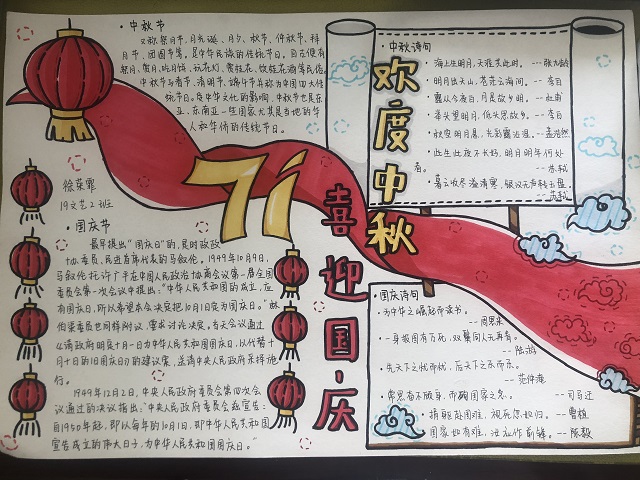 ·中秋节
又称祭月节、月光诞、月夕、秋节、仲秋节、拜
月节、团圆节等，是中华民族的传统节日。自古便有
祭月、赏月、吃月饼、玩花灯、赏桂花、饮桂花酒等民俗。
中秋节与春节、清明节、端午节并称为中国四大传
统节日。受中华文化的影响，中秋节也是东
亚、东南亚一些国家尤其是当地的华
人和华侨的传统节日。
徐荣霏
19文艺2班
·国庆节
最早提出“国庆日”的，是时政政
协委员、民进首席代表的马叙伦。1949年10月9日，
马叙伦托许广平在中国人民政治协商会议第一届全国
委员会第一次会议中提出：“中华人民共和国的成立，应
有国庆日，所以希望本会决定把10月1日定为国庆日。”林
伯渠委员也同样附议，要求讨论决定。当天会议通过
《请政府明定十月一日为中华人民共和国国庆日，以代替十
月十日的旧国庆日》的建议案，送请中央人民政府采择施
行。
1949年12月2日，中央人民政府委员会第四次会
议通过的决议指出，“中央人民政府委员会兹宣告：
自1950年起，即以每年的10月1日，即中华人民共和国
宣告成立的伟大日子，为中华人民共和国国庆日。”
71
喜迎国庆
欢度中秋
·中秋诗句
·海上生明月，天涯共此时。--张九龄
·明月出天山，苍茫云海间。--李白
·露从今夜白，月是故乡明。--杜甫
·举头望明月，低头思故乡。--李白
·秋空明月悬，光彩露沾湿。--孟浩然
·此生此夜不长好，明月明年何处
看。--苏轼
·暮云收尽溢清寒，银汉无声转玉盘。
--苏轼
·国庆诗句
·为中华之崛起而读书。
--周恩来
·一身报国有万死，双鬓向人无再青。
--陆游
·先天下之忧而忧，后天下之乐而乐。
--范仲淹
·常思奋不顾身，而殉国家之急。--司马迁
·捐躯赴国难，视死忽如归。--曹植
·国家如有难，汝应作前锋。--陈毅